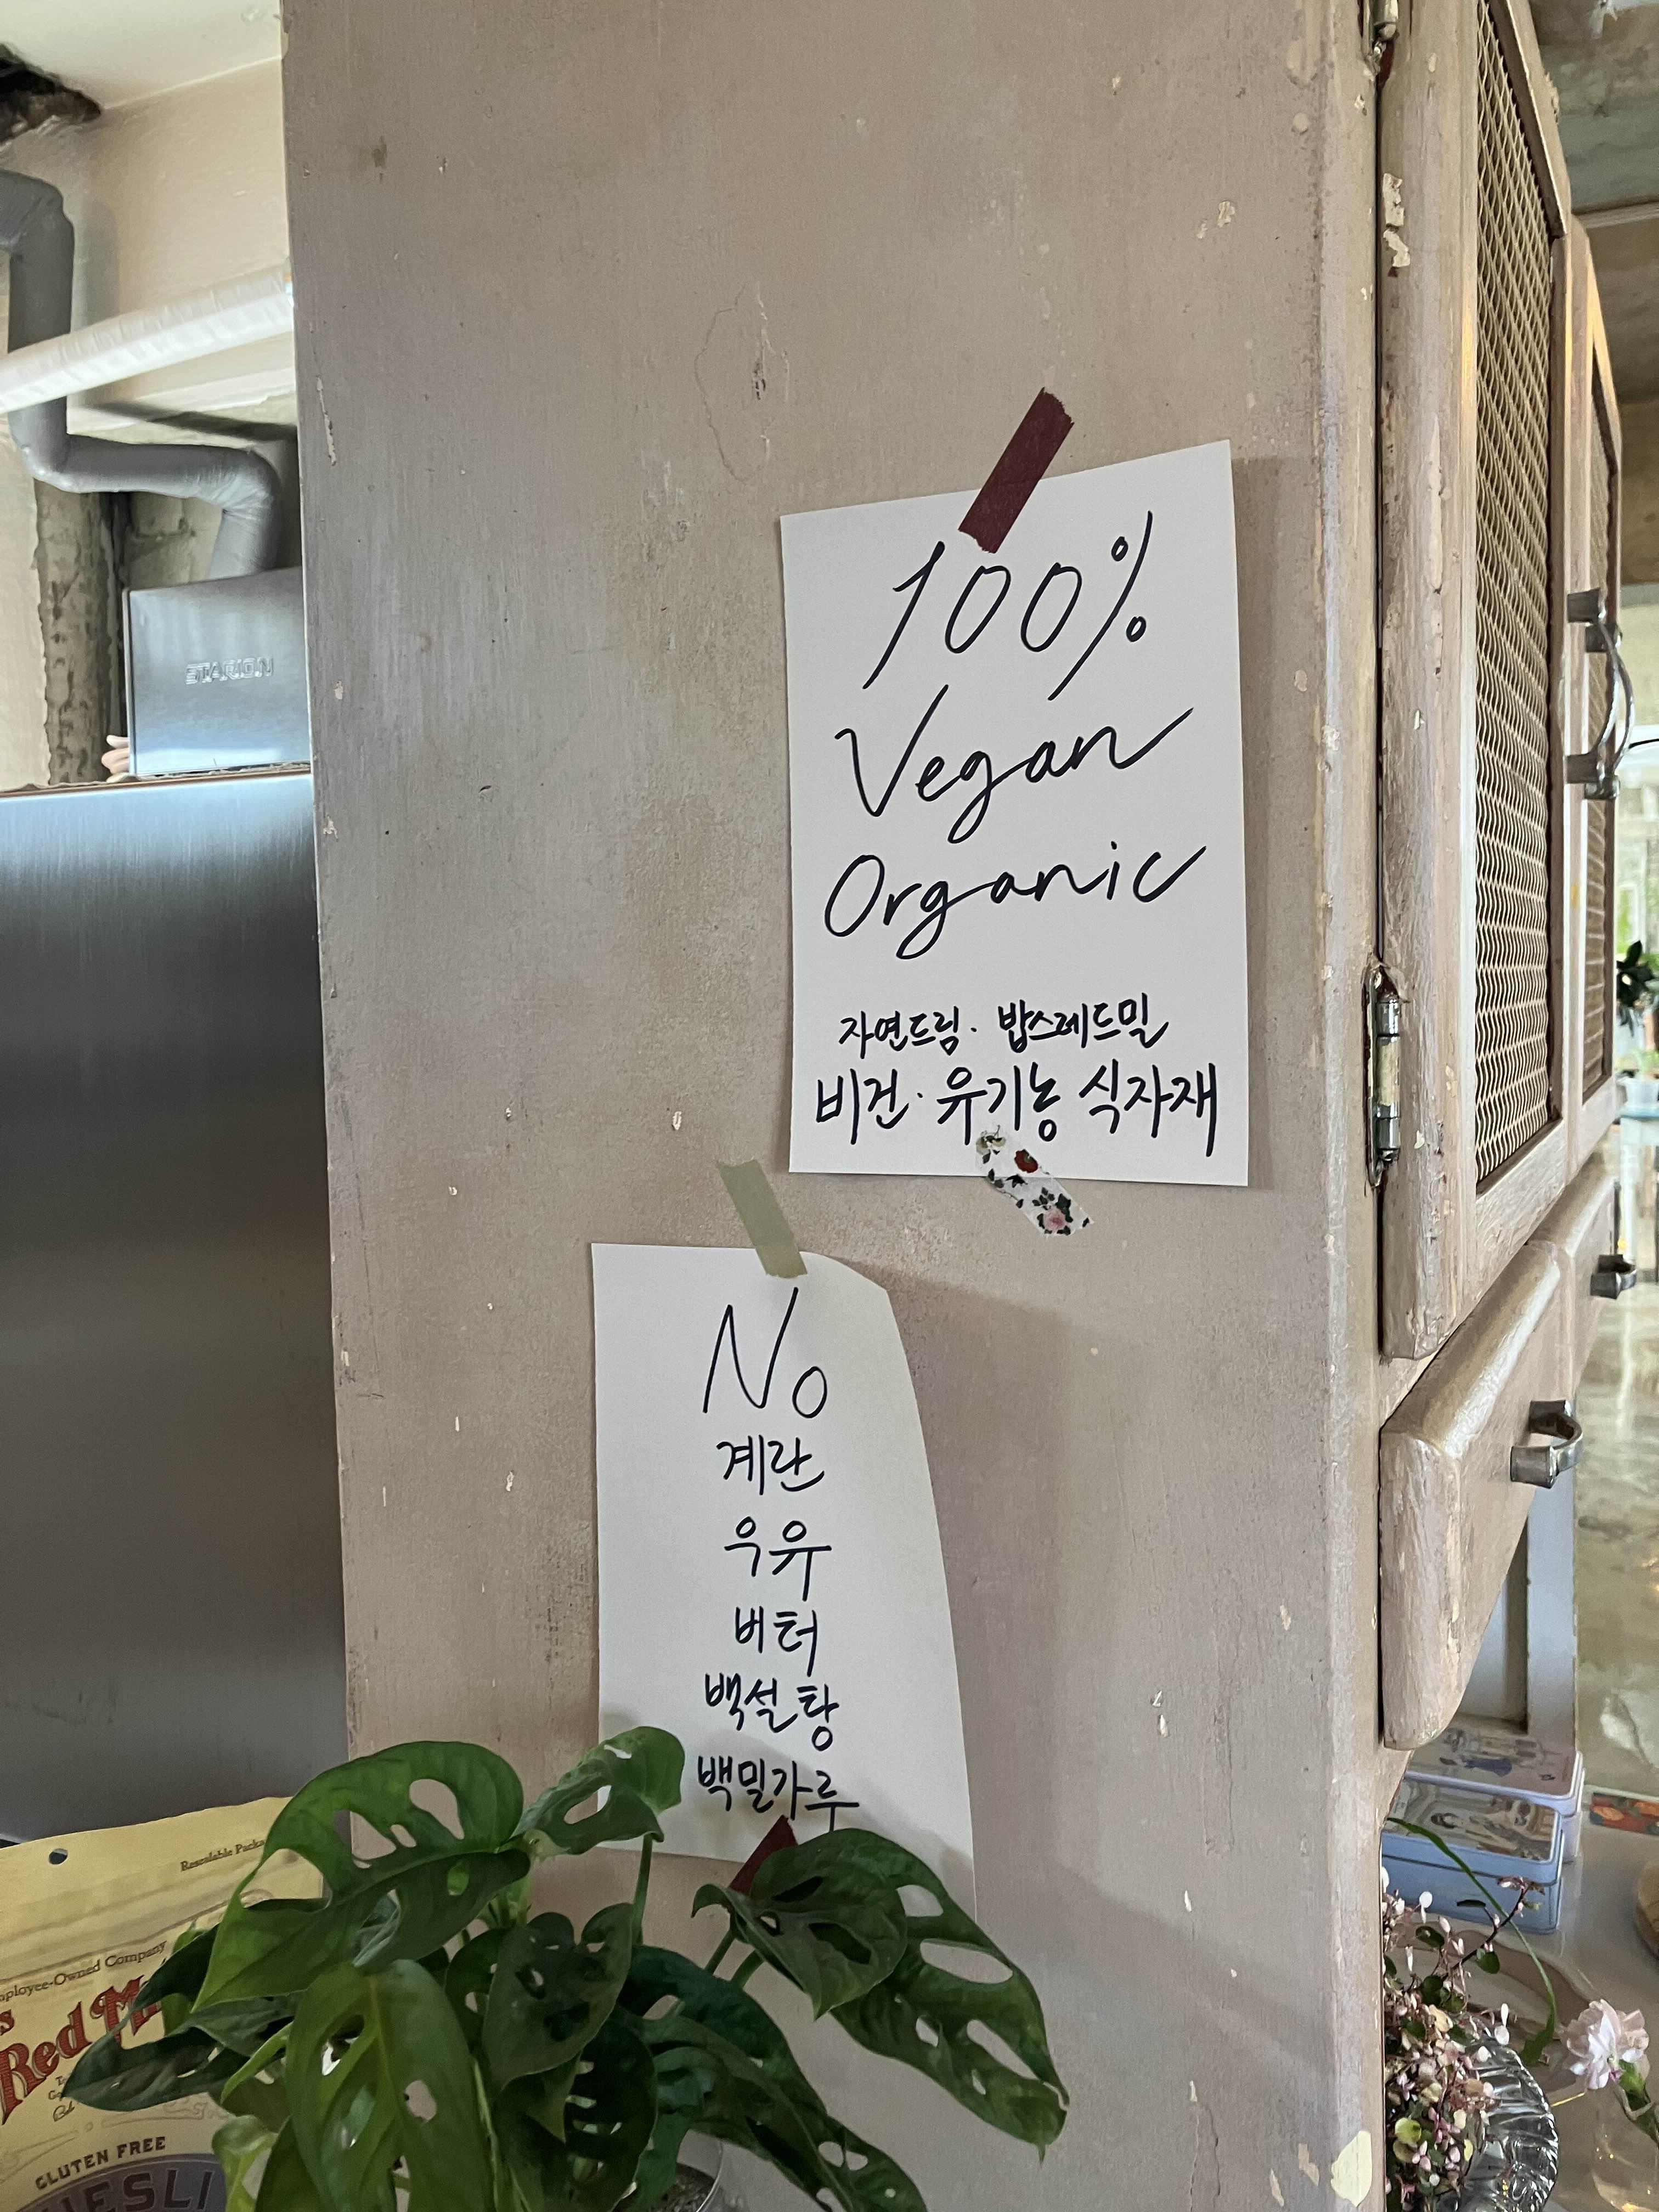 STARION
100%
Vegan
Organic
자연드림· 밥스레드밀
비건·유기농 식자재
No
계란
우유
버터
백설탕
백밀가루
Resealable
Employee-Owned Company
Red
GLUTEN FREE